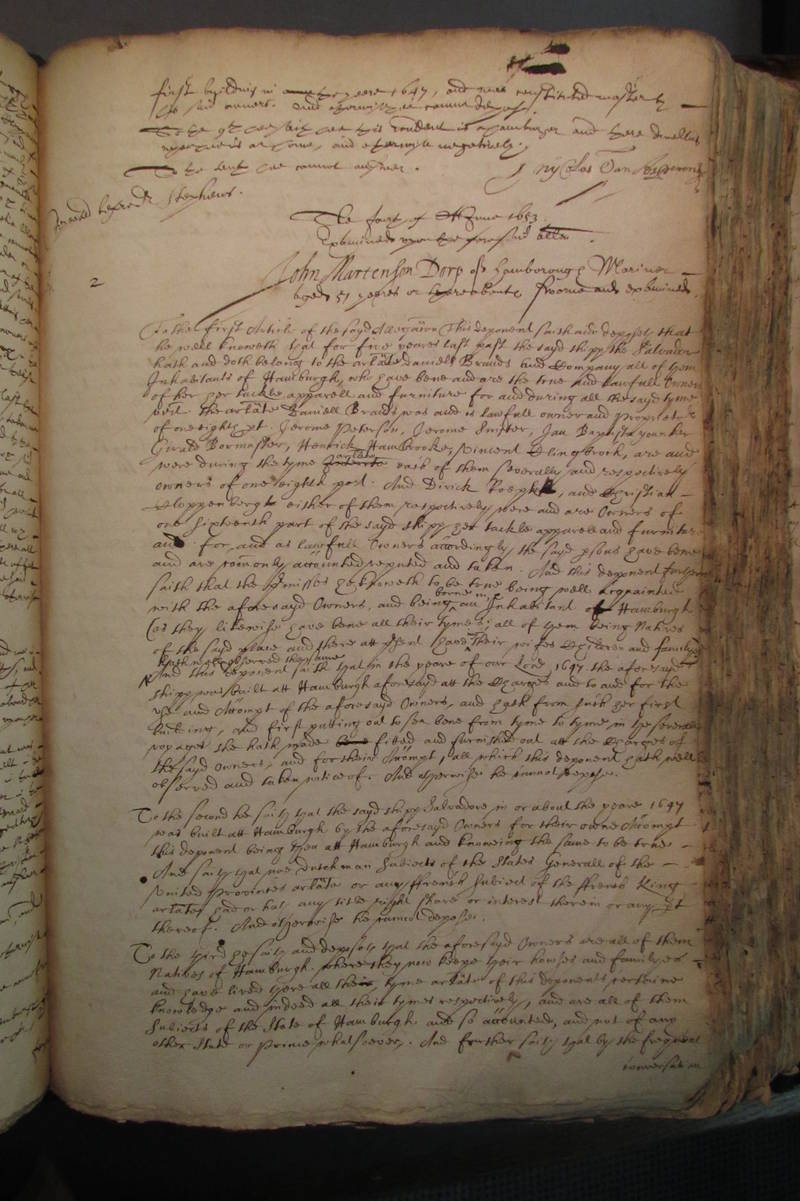 first building in the yeere 1647, and was constituted master by
the said owners. And otherwise he cannot depose.
To the 9th hee saith hee this rendent is a Hamburger and there dwelleth
when hee is at home, and otherwise negatively.
To the last hee cannot answer.
Nicolas Van
The first of June 1653.
Examined upon the foresaid allegation.
2
John Martenson Dorp of Hamborough Mariner
aged 51 yeares or thereabouts sworne and examined.
To the first Article of the sayd Allegation this deponent saith and deposeth that
he well knoweth that for five yeares last past the sayd shipp the Salvador
hath and doth belong to the arlate Daniell Brandes and Company all of them
Inhabitants of Hamburgh, who have bene and are the true and lawfull Owners
of her her tackle apparell and furniture for and during all the sayd tyme
the arlate Daniell Brandes was and is lawfull owner and proprietor
of one eighth part. Jerome Peterson, Jerome Snitker, Jan Baptista
Girade Bormaster, Henrick Hambrooke, Vincent Clingbrook, are and
were during the tyme arlate each of them severally and respectively
owners of one eighth part. And Dirick, and Christian
Cloppenbergh either of them respectively were and are Owners of
one sixteenth part of the sayd shipp her tackle apparell and furniture
and for and as lawfull Owners accordingly the sayd psons have bene
and are comonly accounted reputed and taken. And this deponent further
saith that the premisses he knoweth to be true being well acquainted
with the aforesayd Owners, and being borne in, an Inhabitant of Hamburgh
(as they likewise have bene all their tymes) all of them being Natives
of the sayd place and there att psent have their wifes Children and familyes
hath observed the same
And this deponent saith that in the yeare of our Lord 1647 the aforesayd
shipp was built att Hamburgh aforesayd att the Charges and to and for the
use and Accompt of the aforesayd Owners, and hath from since her first
building, and first putting out to sea bene from tyme to tyme in the severall
voyages she hath made fitted and furnished out att the Charges of
the sayd Owners, and for their Accompt, all which this deponent hath well
observed and taken notice of. And otherwise he cannot depose.
To the second he saith that the sayd shipp Salvadore in or about the yeare 1647
was built att Hamburgh by the aforesayd Owners for their owne Accompt
this deponent being then att Hamburgh and knoweing the same to be true
And saith that noe Dutchman Subiects of the States Generall of the
United Provinces arlate or any ffrench Subiect of the ffrench King
arlate had or hat any title right share or interest therein or any part
thereof. And otherwise he cannot depose.
To the third he saith and deposeth that the aforesayd Owners are all of them
Natives of Hamburgh where they now keepe their howses and familyes
and have lived there all their tyme arlate of this deponents certaine
knowledge and indeed all their tymes respectively, and are all of them
Subiects of the State of Hamburgh and so accounted, and not of any
other State or prince whatsoever. And further saith that by the frequent
conversation